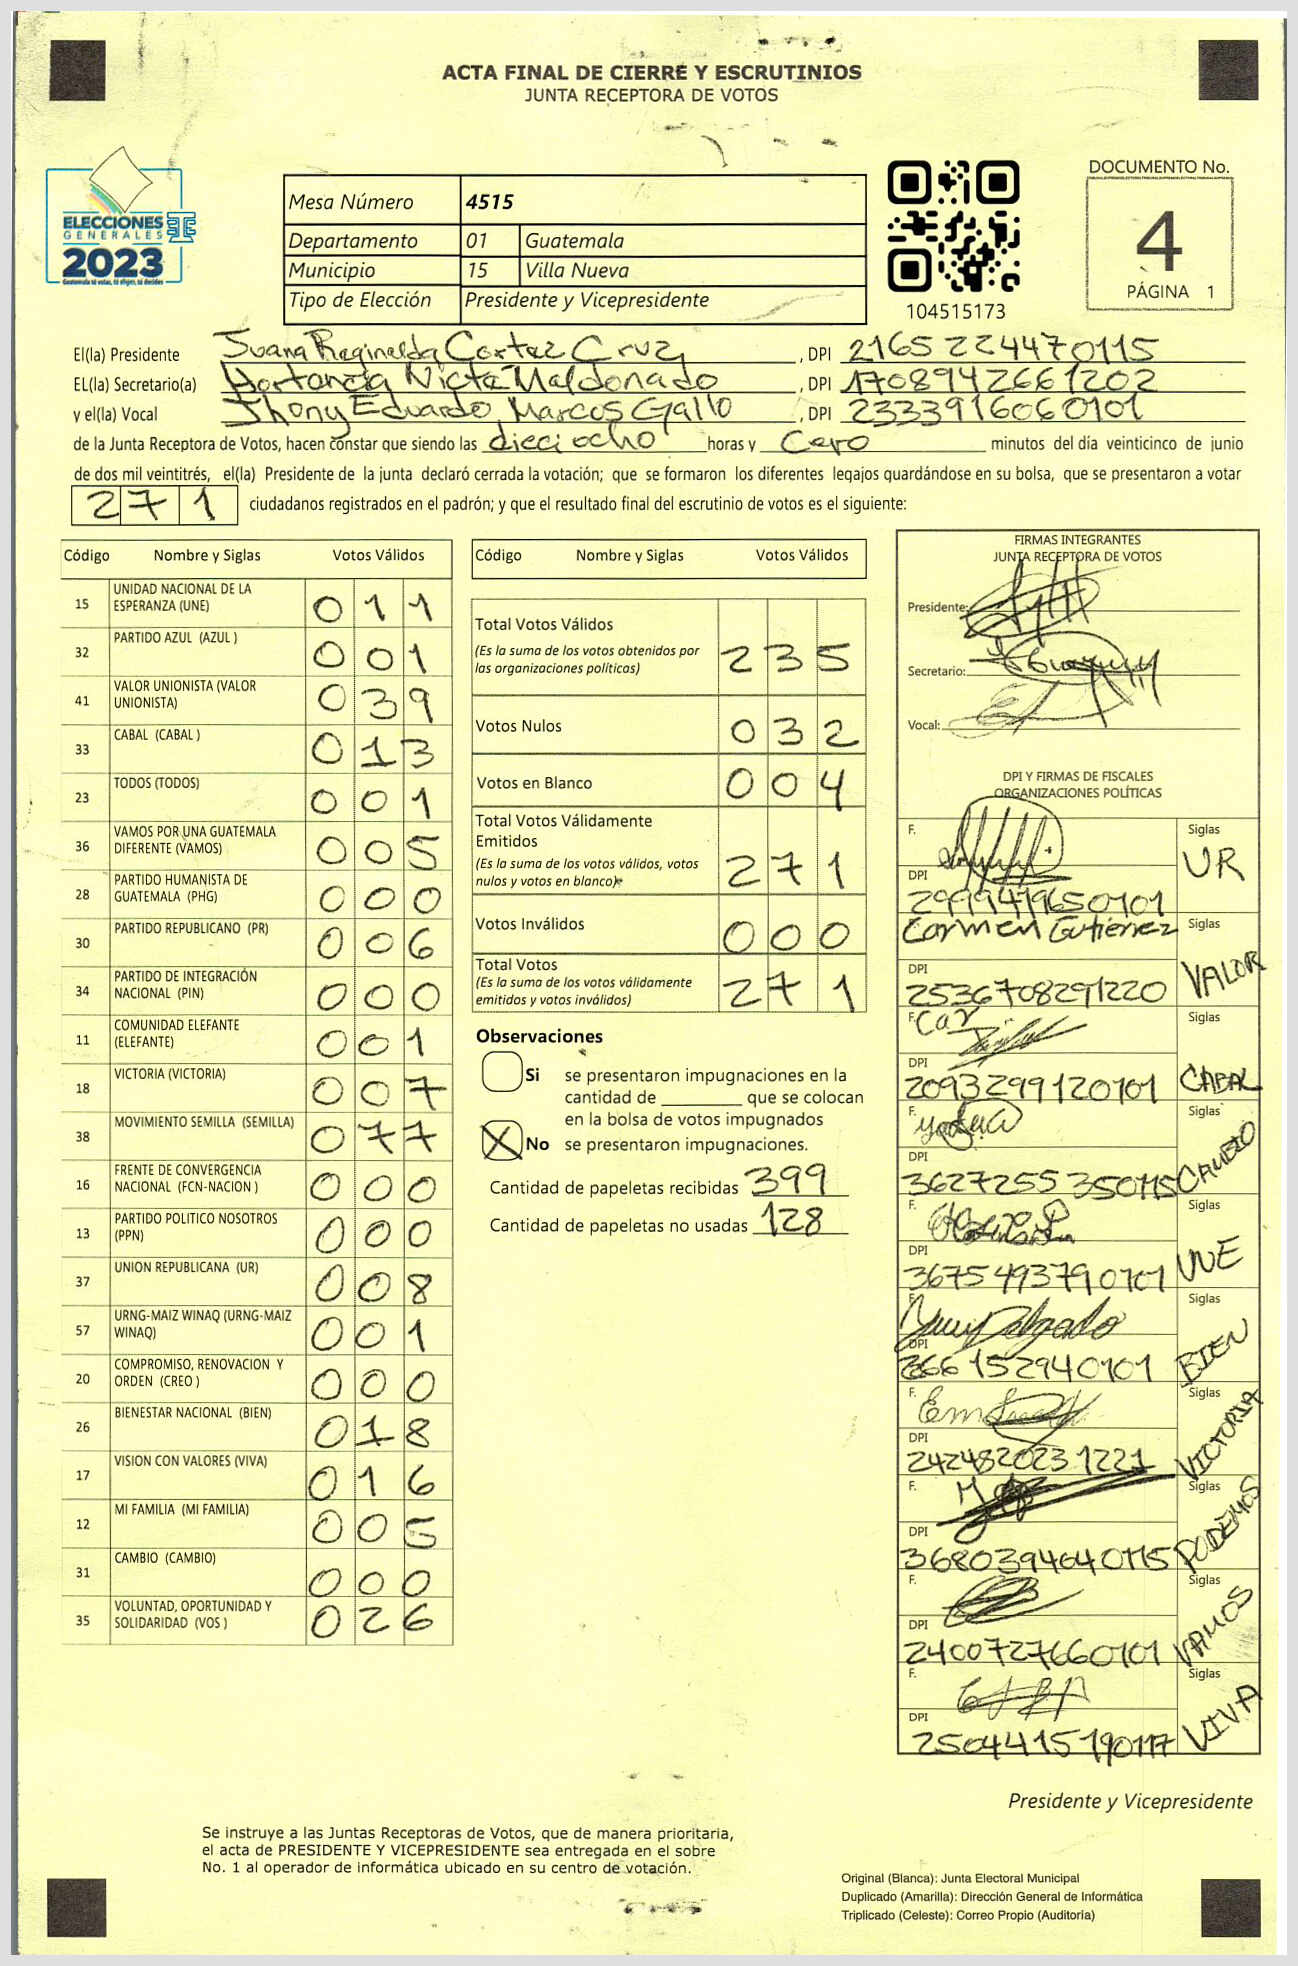 ACTA FINAL DE CIERRE Y ESCRUTINIOS
JUNTA RECEPTORA DE VOTOS
ELECCIONES
GENERALES
2023
Guatemala tú votas, tú eliges, tú decides
Mesa Número 4515
Departamento 01 Guatemala
Municipio 15 Villa Nueva
Tipo de Elección Presidente y Vicepresidente
104515173
DOCUMENTO No.
4
PÁGINA 1
El(la) Presidente Juana Reginalda Cortez Cruz, DPI 2165224470115
EL(la) Secretario(a) Hortancia Nicta Maldonado, DPI 1708942661202
y el(la) Vocal Jhony Eduardo Marcos Gallo, DPI 2333916060101
de la Junta Receptora de Votos, hacen constar que siendo las dieciocho horas y Cero minutos del día veinticinco de junio
de dos mil veintitrés, el(la) Presidente de la junta declaró cerrada la votación; que se formaron los diferentes legajos guardándose en su bolsa, que se presentaron a votar
271 ciudadanos registrados en el padrón; y que el resultado final del escrutinio de votos es el siguiente:
Código Nombre y Siglas Votos Válidos
15 UNIDAD NACIONAL DE LA ESPERANZA (UNE) 011
32 PARTIDO AZUL (AZUL ) 001
41 VALOR UNIONISTA (VALOR UNIONISTA) 039
33 CABAL (CABAL ) 013
23 TODOS (TODOS) 001
36 VAMOS POR UNA GUATEMALA DIFERENTE (VAMOS) 005
28 PARTIDO HUMANISTA DE GUATEMALA (PHG) 000
30 PARTIDO REPUBLICANO (PR) 006
34 PARTIDO DE INTEGRACIÓN NACIONAL (PIN) 000
11 COMUNIDAD ELEFANTE (ELEFANTE) 001
18 VICTORIA (VICTORIA) 007
38 MOVIMIENTO SEMILLA (SEMILLA) 077
16 FRENTE DE CONVERGENCIA NACIONAL (FCN-NACION ) 000
13 PARTIDO POLITICO NOSOTROS (PPN) 000
37 UNION REPUBLICANA (UR) 008
57 URNG-MAIZ WINAQ (URNG-MAIZ WINAQ) 001
20 COMPROMISO, RENOVACION Y ORDEN (CREO ) 000
26 BIENESTAR NACIONAL (BIEN) 018
17 VISION CON VALORES (VIVA) 016
12 MI FAMILIA (MI FAMILIA) 005
31 CAMBIO (CAMBIO) 000
35 VOLUNTAD, OPORTUNIDAD Y SOLIDARIDAD (VOS ) 026
Código Nombre y Siglas Votos Válidos
Total Votos Válidos
(Es la suma de los votos obtenidos por
las organizaciones políticas) 235
Votos Nulos 032
Votos en Blanco 004
Total Votos Válidamente
Emitidos
(Es la suma de los votos válidos, votos
nulos y votos en blanco) 271
Votos Inválidos 000
Total Votos
(Es la suma de los votos válidamente
emitidos y votos inválidos) 271
Observaciones
Si se presentaron impugnaciones en la
cantidad de ________ que se colocan
en la bolsa de votos impugnados
X No se presentaron impugnaciones.
Cantidad de papeletas recibidas 399
Cantidad de papeletas no usadas 128
FIRMAS INTEGRANTES
JUNTA RECEPTORA DE VOTOS
Presidente:
Secretario:
Vocal:
DPI Y FIRMAS DE FISCALES
ORGANIZACIONES POLÍTICAS
F. Siglas UR
DPI 2999419650101
Carmen Gutiérrez Siglas VALOR
DPI 2536708291220
F. Siglas CABAL
DPI 2093299120101
F. Siglas CAMBIO
DPI 3627255350115
F. Siglas UNE
DPI 3675493790101
F. Siglas BIEN
DPI 366152940101
F. Siglas VICTORIA
DPI 2424820231221
F. Siglas PODEMOS
DPI 3680394640115
F. Siglas VAMOS
DPI 2400727660101
F. Siglas VIVA
DPI 2504415190117
Presidente y Vicepresidente
Se instruye a las Juntas Receptoras de Votos, que de manera prioritaria,
el acta de PRESIDENTE Y VICEPRESIDENTE sea entregada en el sobre
No. 1 al operador de informática ubicado en su centro de votación.
Original (Blanca): Junta Electoral Municipal
Duplicado (Amarilla): Dirección General de Informática
Triplicado (Celeste): Correo Propio (Auditoría)